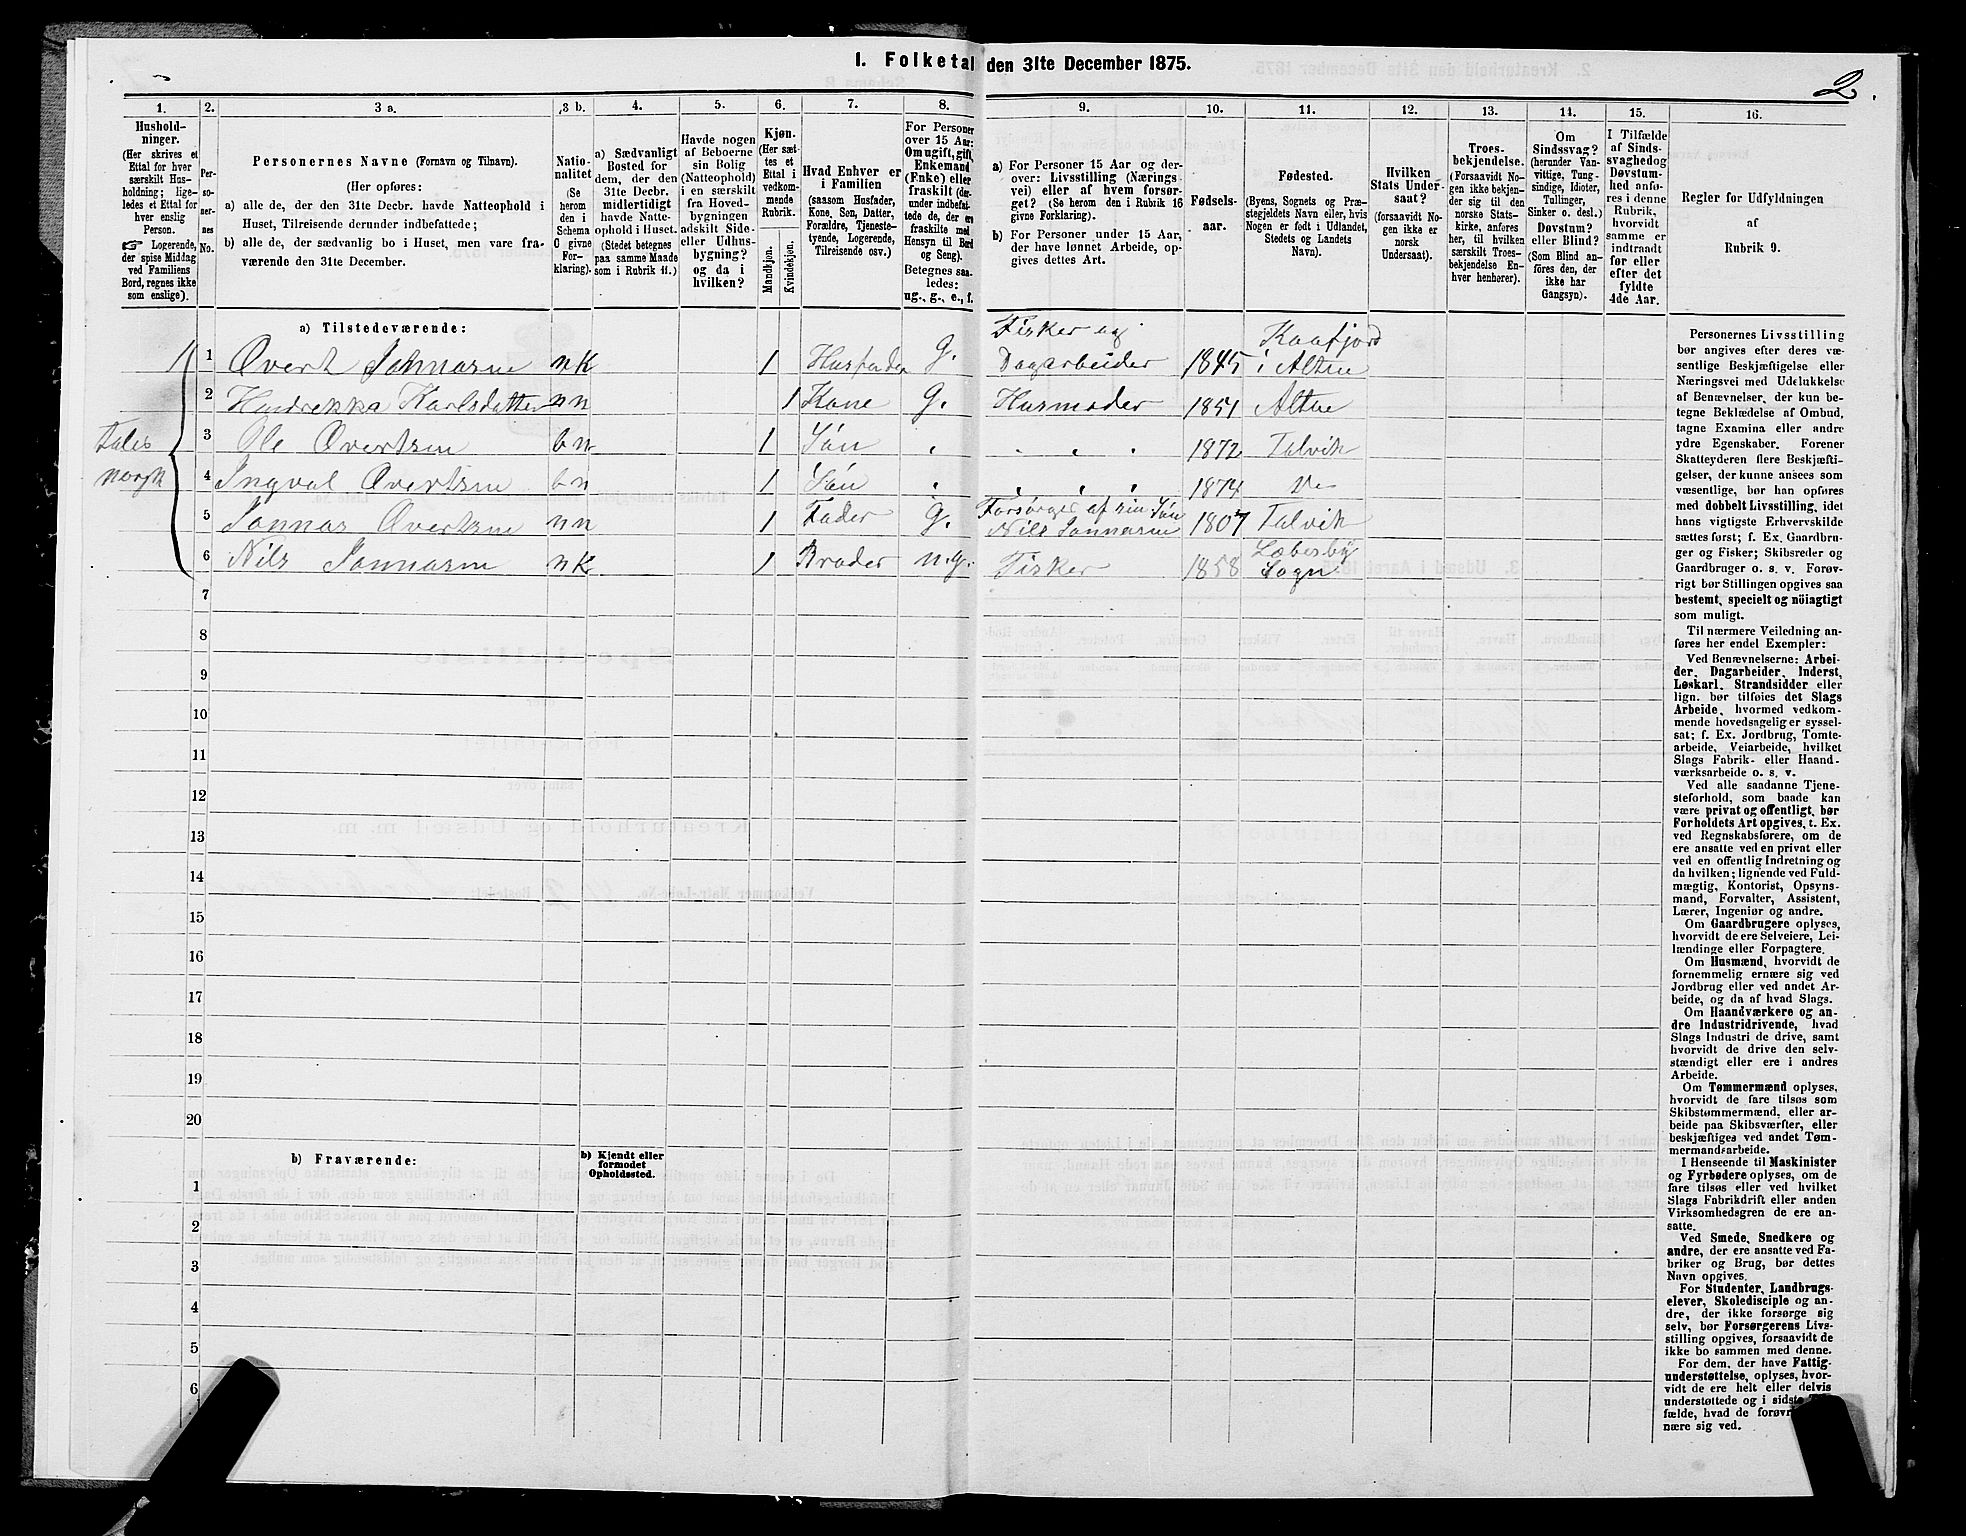 I. Folketal den 31te December 1875.
2.
1.
Hushold-
ninger.
(Her skrives et
Ettal for hver
særskilt Hus-
holdning; lige-
ledes et Ettal for
hver enslig
Person.
☞ Logerende,
der spise Middag
ved Familiens
Bord, regnes ikke
som enslige).
2.
Per-
so-
ner-
nes
No.
3 a.
Personernes Navne (Fornavn og Tilnavn).
(Her opføres:
a) alle de, der den 31te Decbr. havde Natteophold i
Huset, Tilreisende derunder indbefattede;
b) alle de, der sædvanlig bo i Huset, men vare fra-
værende den 31te December.
3 b.
Natio-
nalitet
(Se
herom
den i
Schema
O givne
For-
klaring).
4.
a) Sædvanligt
Bosted for
dem, der den
31te Decbr.
midlertidigt
havde Natte-
ophold i Huset.
(Stedet betegnes
paa samme Maade
som i Rubrik 11.)
5.
Havde nogen
af Beboerne
sin Bolig
(Natteophold)
i en særskilt
fra Hoved-
bygningen
adskilt Side-
eller Udhus-
bygning?
og da i
hvilken?
6.
Kjøn.
(Her sæt-
tes et
Ettal i
vedkom-
mende
Rubrik.
Mandkjøn.
Kvindekjøn.
7.
Hvad Enhver er
i Familien
(saasom Husfader,
Kone, Søn, Datter,
Forældre, Tjeneste-
tyende, Logerende,
Tilreisende osv.)
8.
For Personer
over 15 Aar:
Om ugift, gift,
Enkemand
(Enke) eller
fraskilt (der-
under indbefat-
tede de, der ere
fraskilte med
Hensyn til Bord
og Seng).
Betegnes saa-
ledes:
ug., g., e., f.
9.
a) For Personer 15 Aar og der-
over: Livsstilling (Nærings-
vei) eller af hvem forsør-
get? (Se herom den i Rubrik 16
givne Forklaring).
b) For Personer under 15 Aar,
der have lønnet Arbeide, op-
gives dettes Art.
10.
Fødsels-
aar.
11.
Fødested.
(Byens, Sognets og Præ-
stegjeldets Navn eller, hvis
Nogen er født i Udlandet,
Stedets og Landets
Navn).
12.
Hvilken
Stats Under-
saat?
(forsaavidt No-
gen ikke er
norsk
Undersaat).
13.
Troes-
bekjendelse.
(Forsaavidt No-
gen ikke bekjen-
der sig til den
norske Stats-
kirke, anføres
her, til hvilken
særskilt Troes-
bekjendelse En-
hver henhører).
14.
Om
Sindssvag?
(herunder Van-
vittige, Tung-
sindige, Idioter,
Tullinger,
Sinker o. desl.)
Døvstum?
eller Blind?
(Som Blind an-
føres den, der
ikke har
Gangsyn).
15.
I Tilfælde
af Sinds-
svaghed og
Døvstum-
hed anfø-
res i denne
Rubrik,
hvorvidt
samme er
indtraadt
før eller
efter det
fyldte
4de Aar.
16.
Regler for Udfyldningen
af
Rubrik 9.
a) Tilstedeværende:
1 1 Øvert Jonnasen nk 1 Husfader g. Fisker og Dagarbeider 1845 Kaafjord i Alten
2 Hendrekka Karlsdatter nn 1 Kone g. Husmoder 1851 Alten
3 Ole Øvertsen bn 1 Sön 1872 Talvik
4 Ingval Øvertsen bn 1 Sön 1874 Do
5 Jonnas Øvertsen nn 1 Fader g. Forsörges af sin Sön Nils Jonnasen 1807 Talvik
6 Nils Jonnasen nk 1 Broder ug. Fisker 1858 Lebesby Sogn
tales
norsk
7
8
9
10
11
12
13
14
15
16
17
18
19
20
b) Fraværende:
b) Kjendt eller
formodet
Opholdssted.
1
2
3
4
5
6
Personernes Livsstilling
bør angives efter deres væ-
sentlige Beskjæftigelse eller
Næringsvei med Udelukkelse
af Benævnelser, der kun be-
tegne Beklædelse af Ombud,
tagne Examina eller andre
ydre Egenskaber. Forener
Skatteyderen flere Beskjæfti-
gelser, der kunne ansees som
væsentlige, bør han opføres
med dobbelt Livsstilling, idet
hans vigtigste Erhvervskilde
sættes først; f. Ex. Gaardbru-
ger og Fisker; Skibsreder og
Gaardbruger o. s. v. Forøv-
rigt bør Stillingen opgives saa
bestemt, specielt og nöiagtigt
som muligt.
Til nærmere Veiledning an-
føres her endel Exempler:
Ved Benævnelserne: Arbei-
der, Dagarbeider, Inderst,
Løskarl, Strandsidder eller
lign. bør tilføies det Slags
Arbeide, hvormed vedkom-
mende hovedsagelig er syssel-
sat; f. Ex. Jordbrug, Tomte-
arbeide, Veiarbeide, hvilket
Slags Fabrik- eller Haand-
værksarbeide o. s. v.
Ved alle saadanne Tjene-
steforhold, som baade kan
være privat og offentligt, bør
Forholdets Art opgives, t. Ex.
ved Regnskabsførere, om de
ere ansatte ved en privat eller
ved en offentlig Indretning og
da hvilken; lignende ved Fuld-
mægtig, Kontorist, Opsyns-
mand, Forvalter, Assistent,
Lærer, Ingeniør og andre.
Om Gaardbrugere oplyses,
hvorvidt de ere Selveiere, Lei-
lændinge eller Forpagtere.
Om Husmænd, hvorvidt de
fornemmelig ernære sig ved
Jordbrug eller ved andet Ar-
beide, og da af hvad Slags.
Om Haandværkere og an-
dre Industridrivende, hvad
Slags Industri de drive, samt
hvorvidt de drive den selv-
stændigt eller ere i andres
Arbeide.
Om Tømmermænd oplyses,
hvorvidt de fare tilsøs som
Skibstømmermænd, eller ar-
beide paa Skibsværfter, eller
beskjæftiges ved andet Tøm-
mermandsarbeide.
I Henseende til Maskinister
og Fyrbødere oplyses, om de
fare tilsøs eller ved hvilket
Slags Fabrikdrift eller anden
Virksomhedsgren de ere an-
satte.
Ved Smede, Snedkere og
andre, der ere ansatte ved Fa-
briker og Brug, bør dettes
Navn opgives.
For Studenter, Landbrugs-
elever, Skoledisciple og an-
dre, der ikke forsørge sig
selv, bør Forsørgerens Livs-
stilling opgives, forsaavidt de
ikke bo sammen med denne.
For dem, der have Fattig-
understøttelse, oplyses, hvor-
vidt de ere helt eller delvis
understøttede og i sidste
fælde, hvad de forøv
nære sig ved.